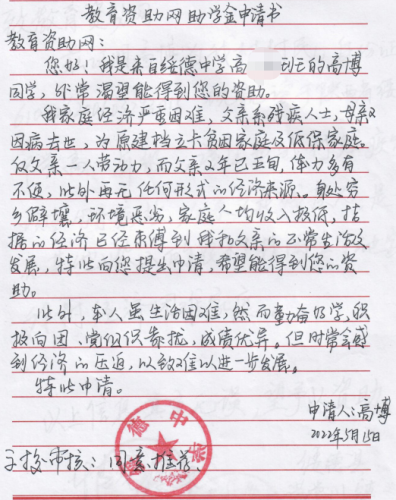 教育资助网助学金申请书
教育资助网：
您好！我是来自绥德中学高 班的高博
同学，非常渴望能得到您的资助。
我家庭经济严重困难，父亲系残疾人士，母亲又
因病去世，为原建档立卡贫困家庭及低保家庭。
仅父亲一人劳动力，而父又年已五旬，体力多有
不便，此外再无任何形式的经济来源。身处穷
乡僻壤，环境恶劣，家庭人均收入极低，拮
据的经济已经束缚到我和父亲的正常生活及
发展，特此向您提出申请，希望能得到您的资
助。
此外，本人虽生活困难，然而勤奋好学，积
极向团、党组织靠拢，成绩优异。但时常会感
到经济的压迫，以致难以进一步发展。
特此申请。
申请人：高博
2022年5月15日
学校审核：同意推荐。
德中学